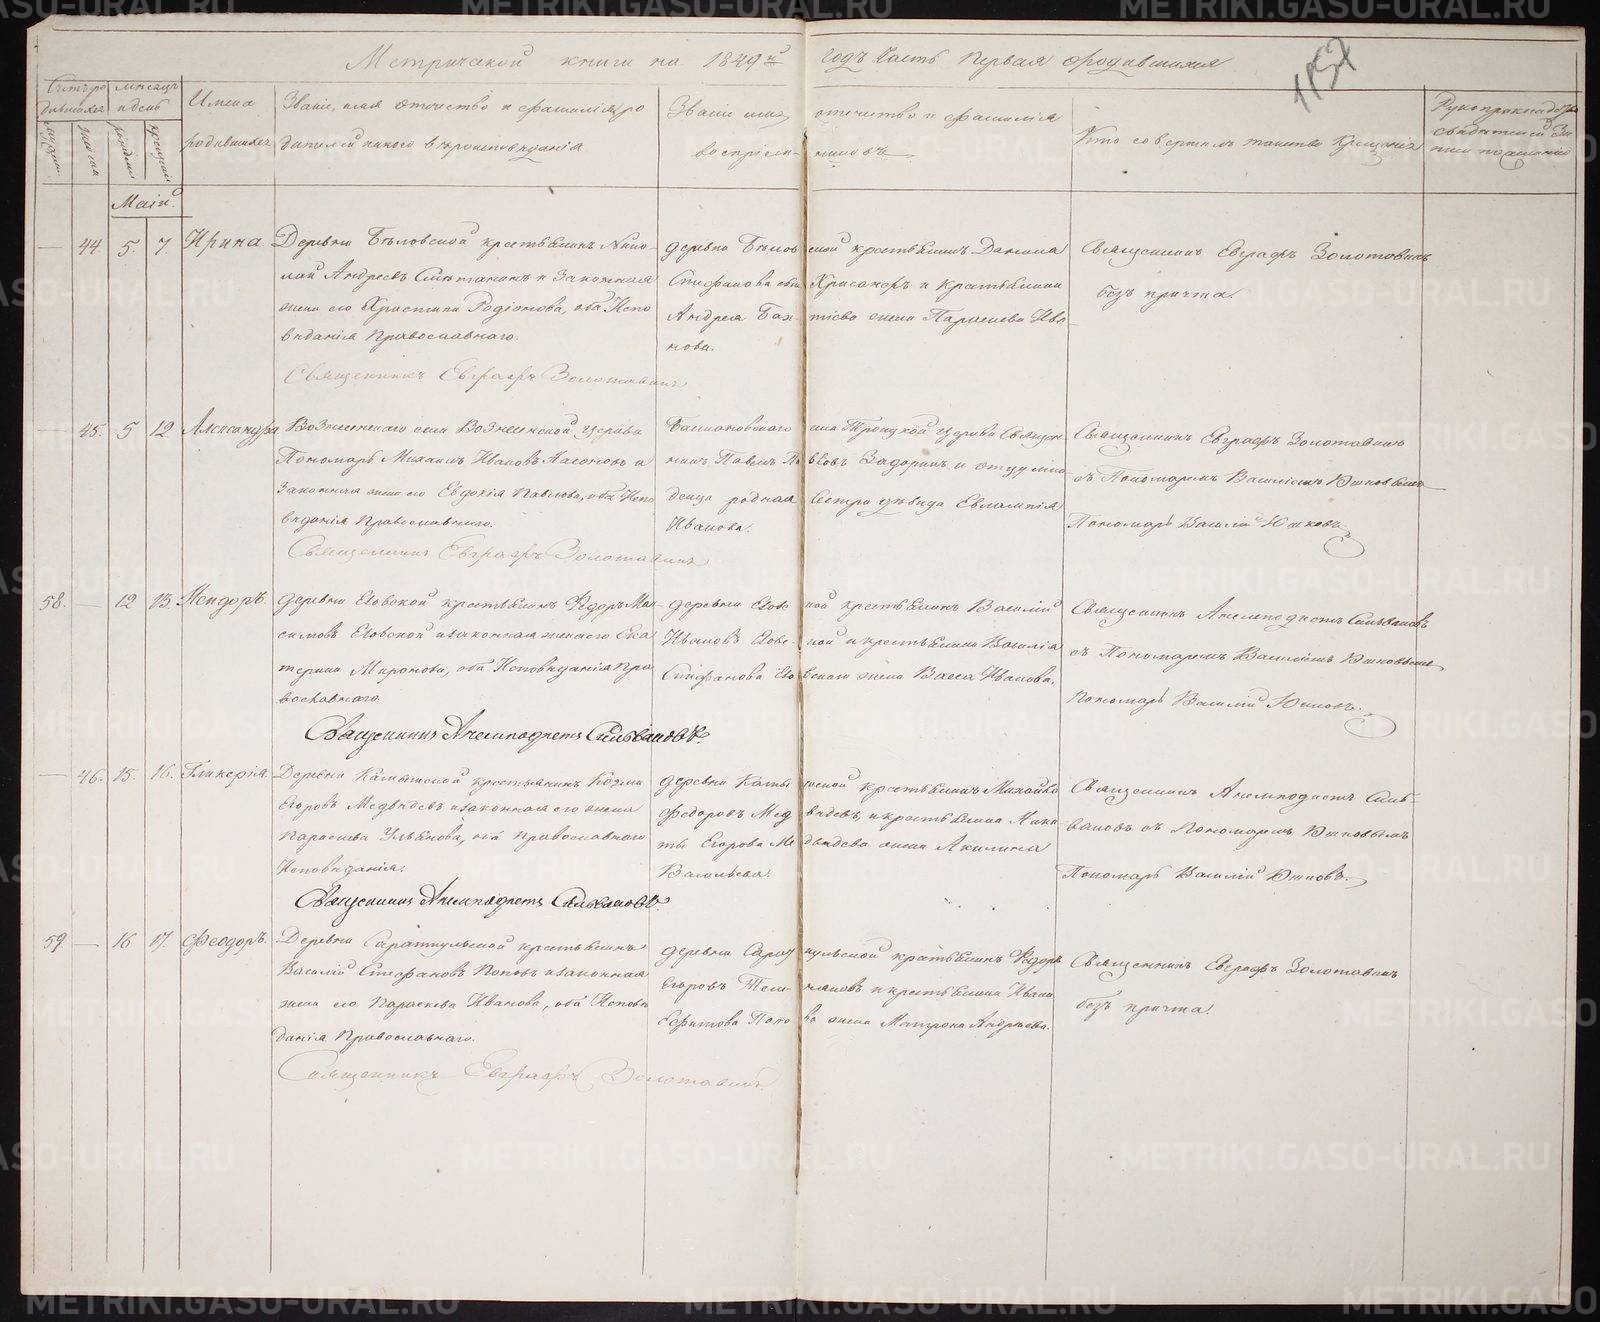 Метрической книги на 1849й годъ Часть Первая о родившихся
1157
Счетъ ро
дившихся
месяцъ
и день
Имена
родившихся
Званіе, имя отчество и фамилія ро
дителей и какого вѣроисповѣданія
Званіе имя отчество и фамилія
воспріемниковъ
Кто совершалъ таинство Крещенія
Рукоприкладство
свидетелей За
писи по желанію
Маій.
— 44 5. 7. Ирина.
Деревни Бѣловской крестьянинъ Нико-
лай Андреевъ Сметанинъ и Законная
жена его Христина Родіонова, оба Испо
вѣданія Православнаго.
Священникъ Евграфъ Золотавинъ
деревни Бѣловской крестьянинъ Данила
Стефановъ Хрисанфъ и крестьянина
Андрея жена Параскева Ива
нова.
Священникъ Евграфъ Золотавинъ
безъ причта.
— 45. 5 12 Александра
Вознесенскаго села Вознесенской церкви
Пономарь Михаилъ Ивановъ и
Законная жена его Евдокія Павлова, оба Испо
вѣданія Православнаго.
Священникъ Евграфъ Золотавинъ
села Троицкой церкви Священ
никъ Павелъ Задоринъ и
родная Сестра дѣвица Евлампія
Иванова.
Священникъ Евграфъ Золотавинъ
съ Пономаремъ Василіемъ Юшковымъ
Пономарь Василій Юшковъ
58. — 12 13. Исидоръ.
деревни Еловской крестьянинъ Ѳедоръ Мак-
симовъ Еловской и законная жена его Ека
терина Миронова, оба Исповѣданія Пра
вославнаго.
Священникъ Анемподистъ Сильвановъ.
деревни Еловской крестьянинъ Василій
Ивановъ Еловской и крестьянина Василія
Стефанова Еловскаго жена Васса Иванова.
Священникъ Анемподистъ Сильвановъ
съ Пономаремъ Василіемъ Юшковымъ
Пономарь Василій Юшковъ.
— 46. 15. 16. Гликерія.
Деревни Камышской крестьянинъ Козма
Егоровъ Медвѣдевъ и законная его жена
Параскева Ульянова, оба Православнаго
Исповѣданія.
Священникъ Анемподистъ Сильвановъ.
деревни Камышской крестьянинъ Михайло
Федоровъ Медвѣдевъ, и крестьянина Ники-
ты Егорова Медвѣдева жена Акилина
Васильева.
Священникъ Анемподистъ Силь-
вановъ съ Пономаремъ Юшковымъ
Пономарь Василій Юшковъ.
59 — 16 17. Феодоръ.
Деревни Сарапульской крестьянинъ
Василій Стефановъ Поповъ и законная
жена его Параскева Иванова, оба Исповѣ
данія Православнаго.
Священникъ Евграфъ Золотавинъ
деревни Сарапульской крестьянинъ Ѳедоръ
Егоровъ и крестьянина Ивана
Ефимова Попова жена Матрона Андреева.
Священникъ Евграфъ Золотавинъ
безъ причта.
METRIKI.GASO-URAL.RU